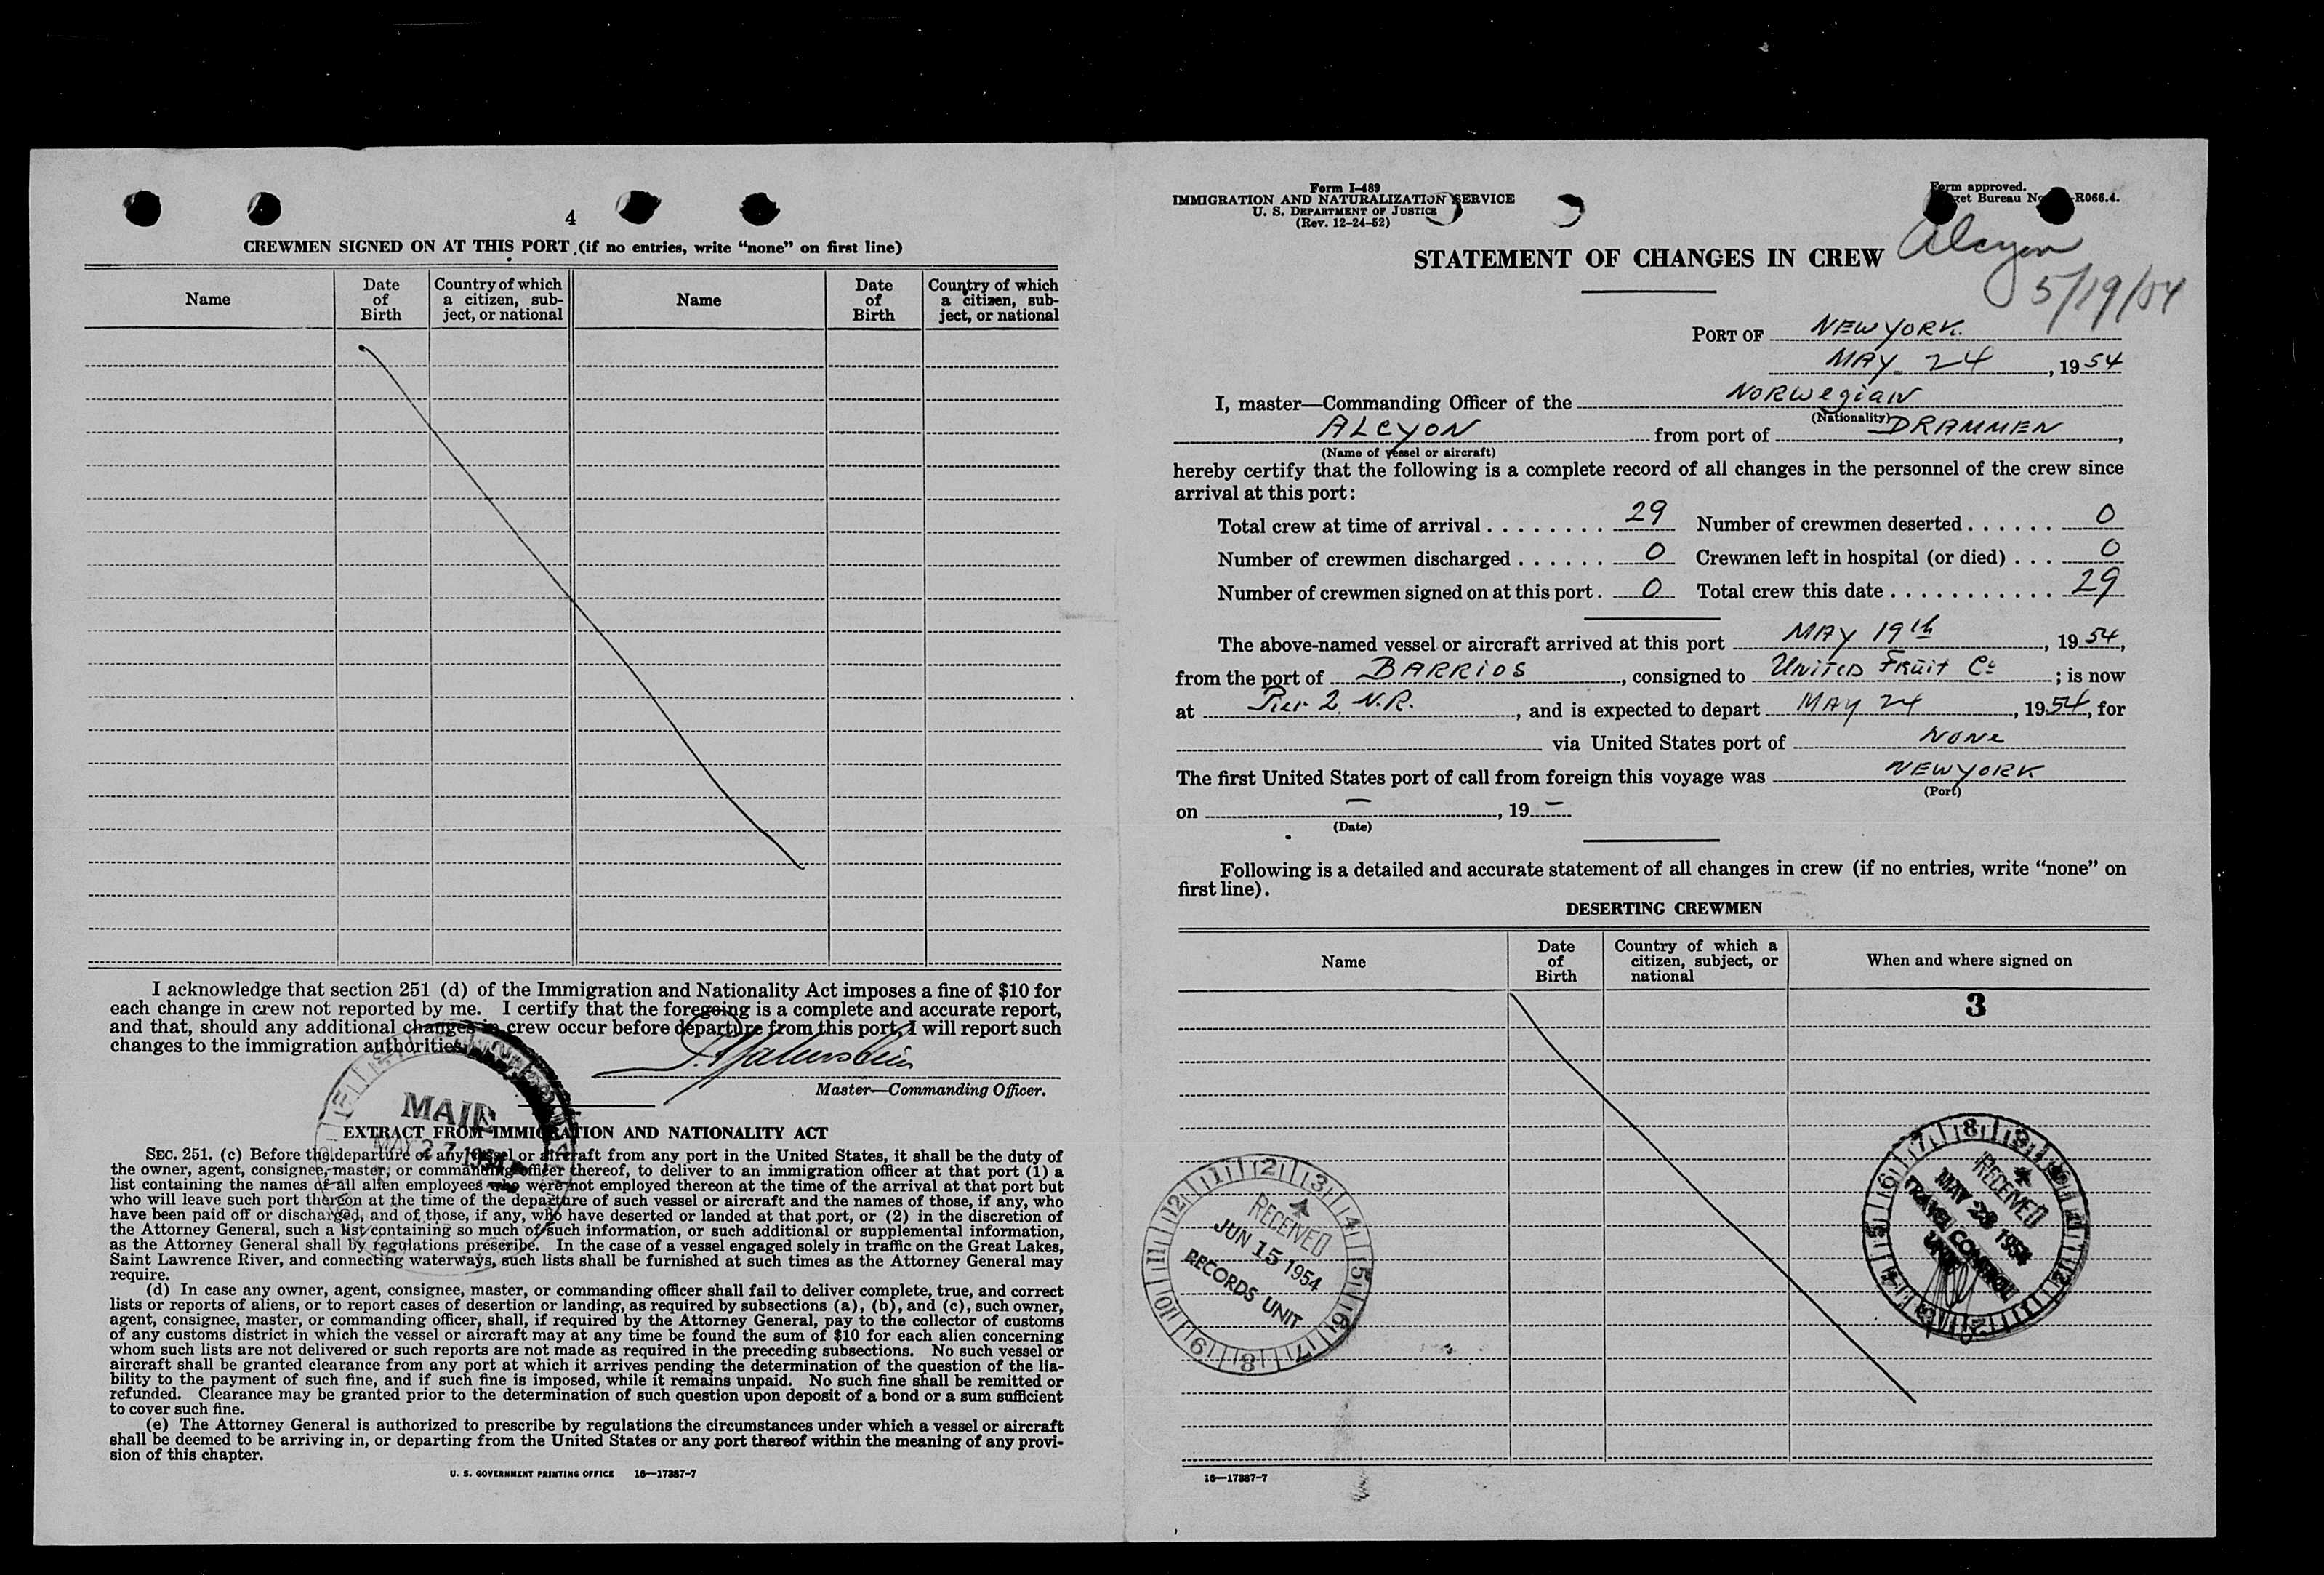 4
CREWMEN SIGNED ON AT THIS PORT (if no entries, write “none” on first line)
Name
Date of Birth
Country of which a citizen, sub-ject, or national
Name
Date of Birth
Country of which a citizen, sub-ject, or national
I acknowledge that section 251 (d) of the Immigration and Nationality Act imposes a fine of $10 for
each change in crew not reported by me. I certify that the foregoing is a complete and accurate report,
and that, should any additional changes in crew occur before departure from this port, I will report such
changes to the immigration authorities.
Master—Commanding Officer.
MAIL
MAY 27 1954
EXTRACT FROM IMMIGRATION AND NATIONALITY ACT
SEC. 251. (c) Before the departure of any vessel or aircraft from any port in the United States, it shall be the duty of
the owner, agent, consignee, master, or commanding officer thereof, to deliver to an immigration officer at that port (1) a
list containing the names of all alien employees who were not employed thereon at the time of the arrival at that port but
who will leave such port thereon at the time of the departure of such vessel or aircraft and the names of those, if any, who
have been paid off or discharged, and of those, if any, who have deserted or landed at that port, or (2) in the discretion of
the Attorney General, such a list containing so much of such information, or such additional or supplemental information,
as the Attorney General shall by regulations prescribe. In the case of a vessel engaged solely in traffic on the Great Lakes,
Saint Lawrence River, and connecting waterways, such lists shall be furnished at such times as the Attorney General may
require.
(d) In case any owner, agent, consignee, master, or commanding officer shall fail to deliver complete, true, and correct
lists or reports of aliens, or to report cases of desertion or landing, as required by subsections (a), (b), and (c), such owner,
agent, consignee, master, or commanding officer, shall, if required by the Attorney General, pay to the collector of customs
of any customs district in which the vessel or aircraft may at any time be found the sum of $10 for each alien concerning
whom such lists are not delivered or such reports are not made as required in the preceding subsections. No such vessel or
aircraft shall be granted clearance from any port at which it arrives pending the determination of the question of the lia-
bility to the payment of such fine, and if such fine is imposed, while it remains unpaid. No such fine shall be remitted or
refunded. Clearance may be granted prior to the determination of such question upon deposit of a bond or a sum sufficient
to cover such fine.
(e) The Attorney General is authorized to prescribe by regulations the circumstances under which a vessel or aircraft
shall be deemed to be arriving in, or departing from the United States or any port thereof within the meaning of any provi-
sion of this chapter.
U. S. GOVERNMENT PRINTING OFFICE 16—17387-7
Form I-489
IMMIGRATION AND NATURALIZATION SERVICE
U. S. DEPARTMENT OF JUSTICE
(Rev. 12-24-52)
Form approved.
Bureau No. R066.4.
Alcyon
5/19/54
STATEMENT OF CHANGES IN CREW
PORT OF NEW YORK.
MAY 24, 1954
I, master—Commanding Officer of the NORWEGIAN
(Nationality)
ALCYON from port of DRAMMEN,
(Name of vessel or aircraft)
hereby certify that the following is a complete record of all changes in the personnel of the crew since
arrival at this port:
Total crew at time of arrival 29 Number of crewmen deserted 0
Number of crewmen discharged 0 Crewmen left in hospital (or died) 0
Number of crewmen signed on at this port. 0 Total crew this date 29
The above-named vessel or aircraft arrived at this port MAY 19th, 1954,
from the port of BARRIOS, consigned to UNITED FRUIT Co; is now
at Pier 2 N.R., and is expected to depart MAY 24, 1954, for
via United States port of NONE
The first United States port of call from foreign this voyage was NEW YORK
(Port)
on —, 19 —
(Date)
Following is a detailed and accurate statement of all changes in crew (if no entries, write “none” on
first line).
DESERTING CREWMEN
Name
Date of Birth
Country of which a citizen, subject, or national
When and where signed on
3
RECEIVED
JUN 15 1954
RECORDS UNIT
RECEIVED
MAY 28 1954
TRAVEL CONTROL
UNIT
16—17387-7